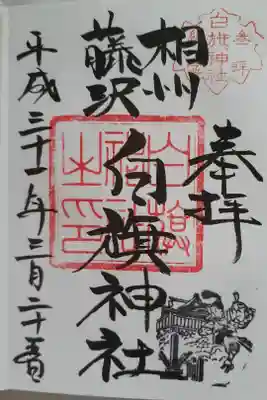 奉拝
相州
藤沢 白旗神社
平成三十一年三月二十五日
白旗神社
参拝
白旗神社之印